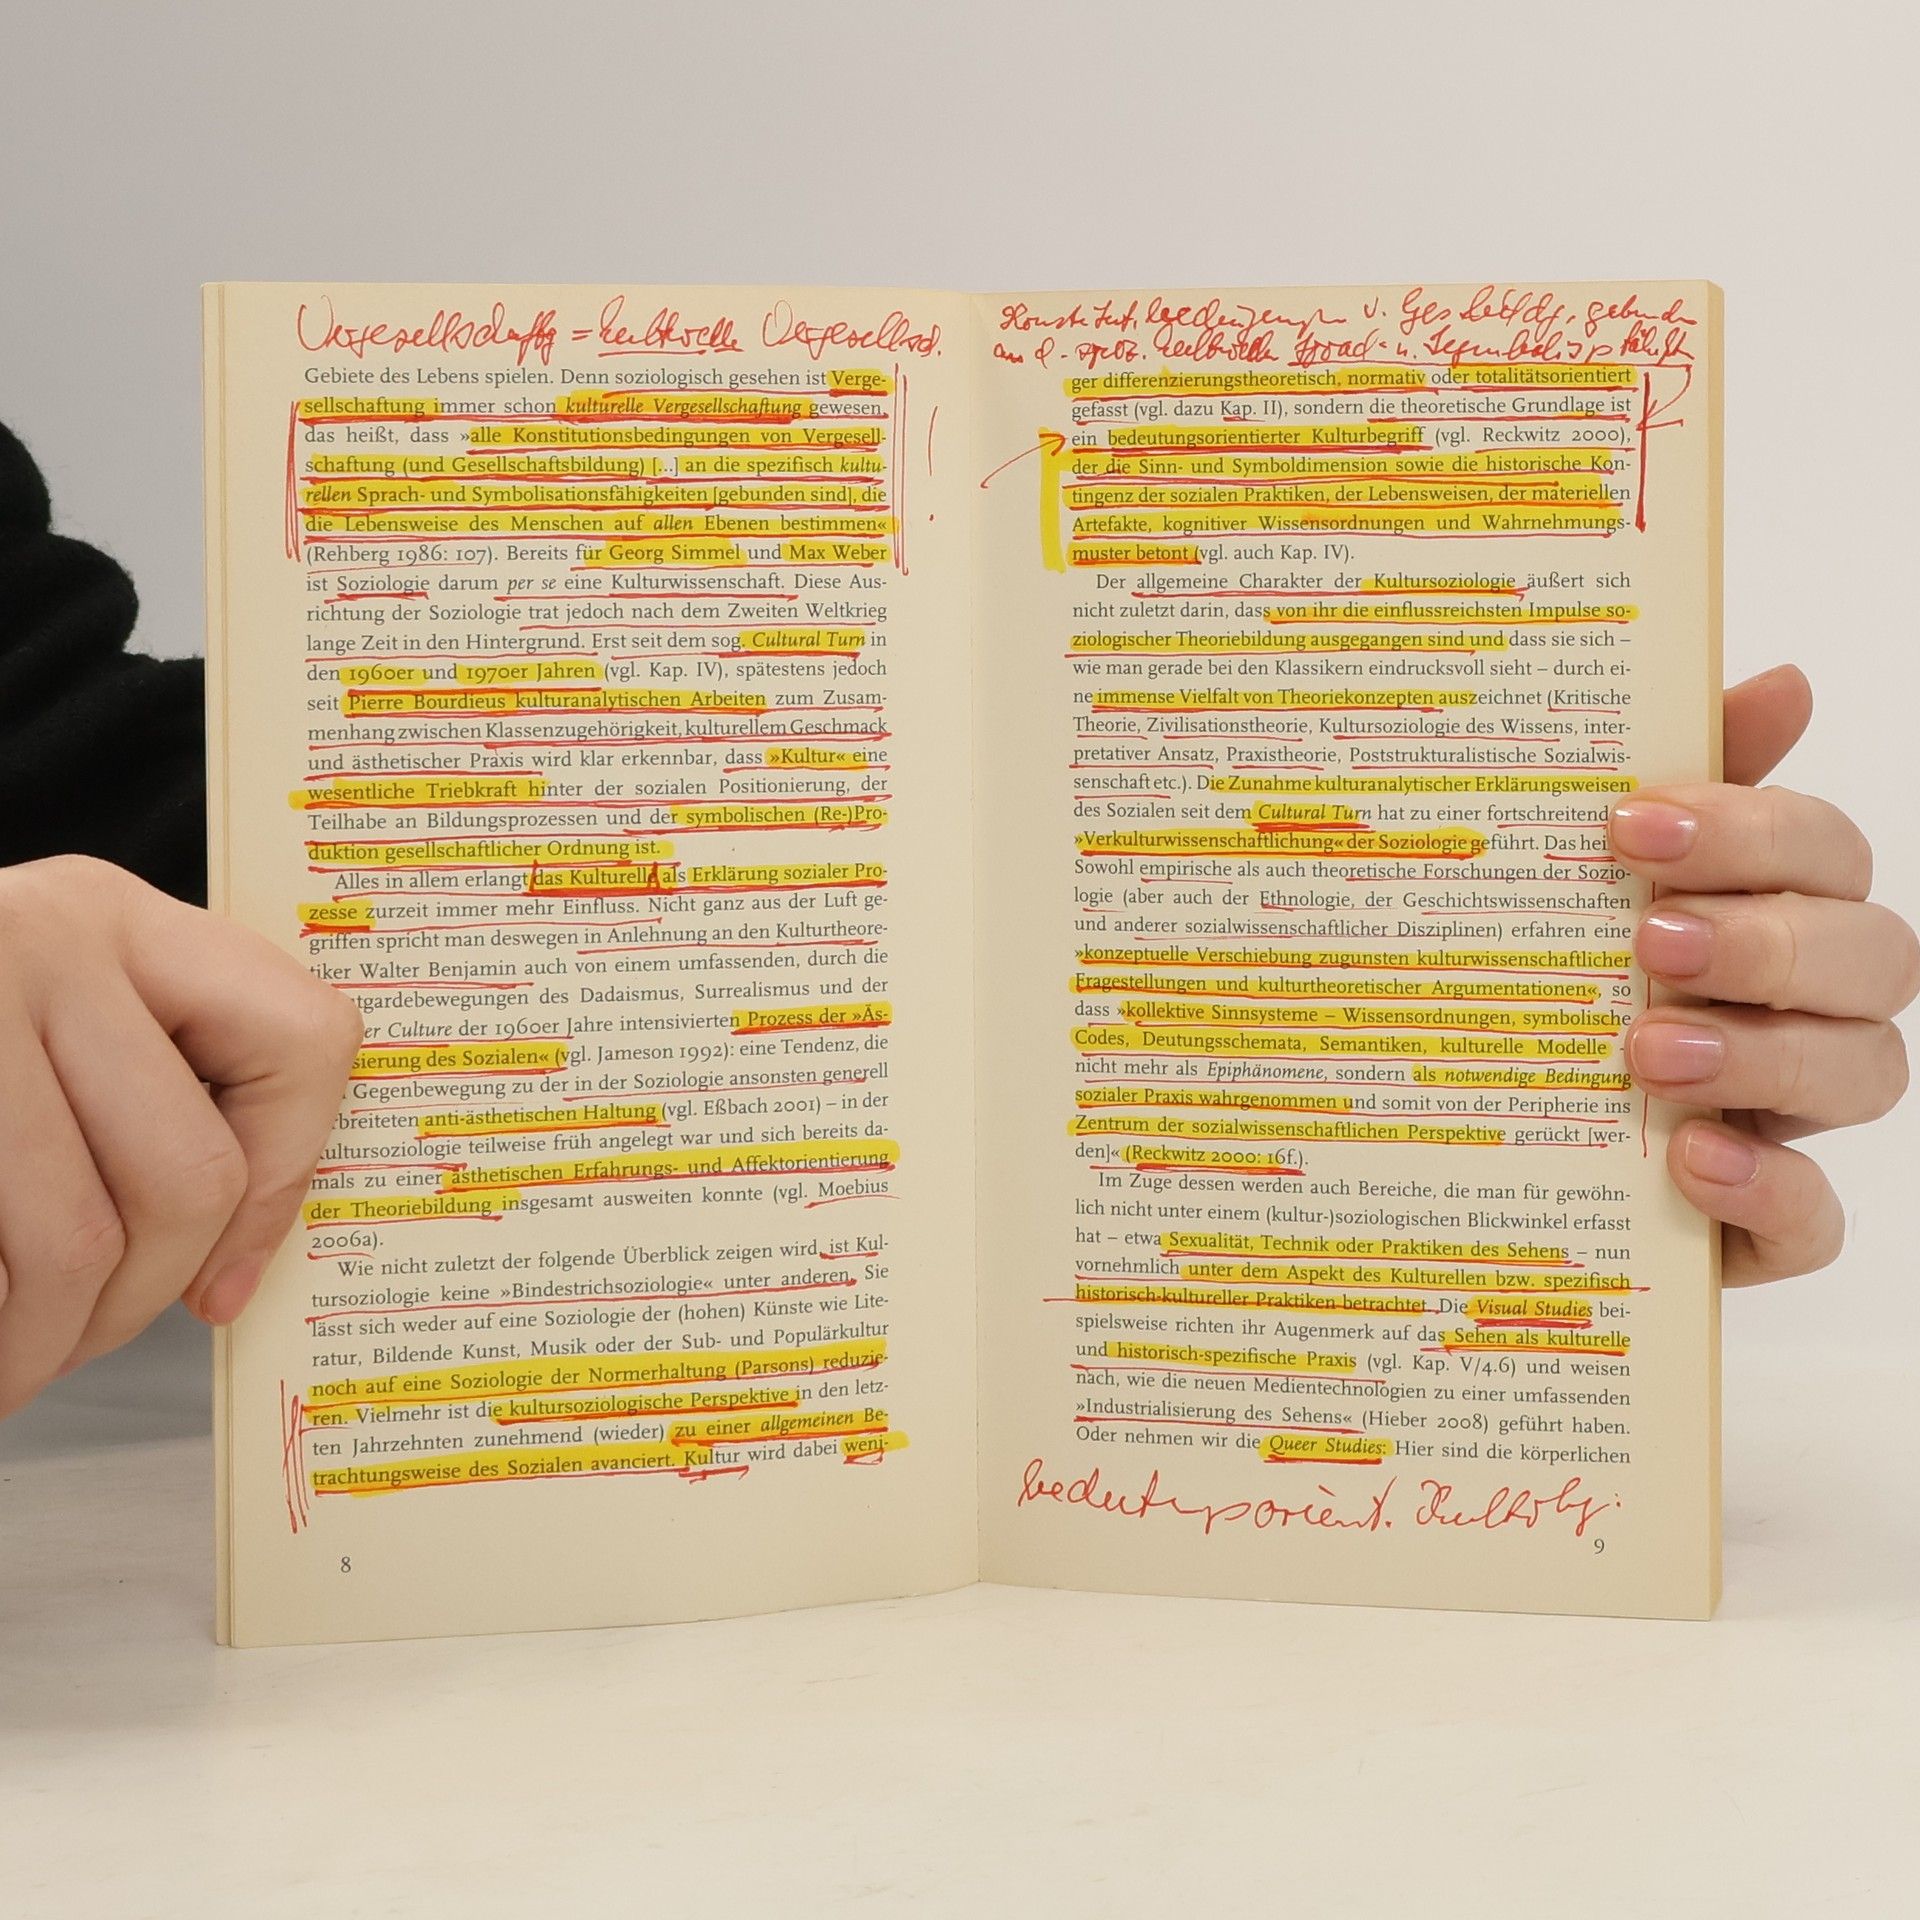 Vergesellschaftg = kulturelle Vergesellsch.
Gebiete des Lebens spielen. Denn soziologisch gesehen ist Verge-
sellschaftung immer schon kulturelle Vergesellschaftung gewesen,
das heißt, dass »alle Konstitutionsbedingungen von Vergesell-
schaftung (und Gesellschaftsbildung) [...] an die spezifisch kultu-
rellen Sprach- und Symbolisationsfähigkeiten [gebunden sind], die
die Lebensweise des Menschen auf allen Ebenen bestimmen«
(Rehberg 1986: 107). Bereits für Georg Simmel und Max Weber
ist Soziologie darum per se eine Kulturwissenschaft. Diese Aus-
richtung der Soziologie trat jedoch nach dem Zweiten Weltkrieg
lange Zeit in den Hintergrund. Erst seit dem sog. Cultural Turn in
den 1960er und 1970er Jahren (vgl. Kap. IV), spätestens jedoch
seit Pierre Bourdieus kulturanalytischen Arbeiten zum Zusam-
menhang zwischen Klassenzugehörigkeit, kulturellem Geschmack
und ästhetischer Praxis wird klar erkennbar, dass »Kultur« eine
wesentliche Triebkraft hinter der sozialen Positionierung, der
Teilhabe an Bildungsprozessen und der symbolischen (Re-)Pro-
duktion gesellschaftlicher Ordnung ist.
Alles in allem erlangt das Kulturelle als Erklärung sozialer Pro-
zesse zurzeit immer mehr Einfluss. Nicht ganz aus der Luft ge-
griffen spricht man deswegen in Anlehnung an den Kulturtheore-
tiker Walter Benjamin auch von einem umfassenden, durch die
tgardebewegungen des Dadaismus, Surrealismus und der
er Culture der 1960er Jahre intensivierten Prozess der »Äs-
sierung des Sozialen« (vgl. Jameson 1992): eine Tendenz, die
Gegenbewegung zu der in der Soziologie ansonsten generell
rbreiteten anti-ästhetischen Haltung (vgl. Eßbach 2001) – in der
ultursoziologie teilweise früh angelegt war und sich bereits da-
mals zu einer ästhetischen Erfahrungs- und Affektorientierung
der Theoriebildung insgesamt ausweiten konnte (vgl. Moebius
2006a).
Wie nicht zuletzt der folgende Überblick zeigen wird, ist Kul-
tursoziologie keine »Bindestrichsoziologie« unter anderen. Sie
lässt sich weder auf eine Soziologie der (hohen) Künste wie Lite-
ratur, Bildende Kunst, Musik oder der Sub- und Populärkultur
noch auf eine Soziologie der Normerhaltung (Parsons) reduzie-
ren. Vielmehr ist die kultursoziologische Perspektive in den letz-
ten Jahrzehnten zunehmend (wieder) zu einer allgemeinen Be-
trachtungsweise des Sozialen avanciert. Kultur wird dabei weni-
8
gebunden
kulturelle Sprach- u.
ger differenzierungstheoretisch, normativ oder totalitätsorientiert
gefasst (vgl. dazu Kap. II), sondern die theoretische Grundlage ist
ein bedeutungsorientierter Kulturbegriff (vgl. Reckwitz 2000),
der die Sinn- und Symboldimension sowie die historische Kon-
tingenz der sozialen Praktiken, der Lebensweisen, der materiellen
Artefakte, kognitiver Wissensordnungen und Wahrnehmungs-
muster betont (vgl. auch Kap. IV).
Der allgemeine Charakter der Kultursoziologie äußert sich
nicht zuletzt darin, dass von ihr die einflussreichsten Impulse so-
ziologischer Theoriebildung ausgegangen sind und dass sie sich –
wie man gerade bei den Klassikern eindrucksvoll sieht – durch ei-
ne immense Vielfalt von Theoriekonzepten auszeichnet (Kritische
Theorie, Zivilisationstheorie, Kultursoziologie des Wissens, inter-
pretativer Ansatz, Praxistheorie, Poststrukturalistische Sozialwis-
senschaft etc.). Die Zunahme kulturanalytischer Erklärungsweisen
des Sozialen seit dem Cultural Turn hat zu einer fortschreitend
»Verkulturwissenschaftlichung« der Soziologie geführt. Das hei
Sowohl empirische als auch theoretische Forschungen der Sozio-
logie (aber auch der Ethnologie, der Geschichtswissenschaften
und anderer sozialwissenschaftlicher Disziplinen) erfahren eine
»konzeptuelle Verschiebung zugunsten kulturwissenschaftlicher
Fragestellungen und kulturtheoretischer Argumentationen«, so
dass »kollektive Sinnsysteme – Wissensordnungen, symbolische
Codes, Deutungsschemata, Semantiken, kulturelle Modelle –
nicht mehr als Epiphänomene, sondern als notwendige Bedingung
sozialer Praxis wahrgenommen und somit von der Peripherie ins
Zentrum der sozialwissenschaftlichen Perspektive gerückt [wer-
den]« (Reckwitz 2000: 16f.).
Im Zuge dessen werden auch Bereiche, die man für gewöhn-
lich nicht unter einem (kultur-)soziologischen Blickwinkel erfasst
hat – etwa Sexualität, Technik oder Praktiken des Sehens – nun
vornehmlich unter dem Aspekt des Kulturellen bzw. spezifisch
historisch-kultureller Praktiken betrachtet. Die Visual Studies bei-
spielsweise richten ihr Augenmerk auf das Sehen als kulturelle
und historisch-spezifische Praxis (vgl. Kap. V/4.6) und weisen
nach, wie die neuen Medientechnologien zu einer umfassenden
»Industrialisierung des Sehens« (Hieber 2008) geführt haben.
Oder nehmen wir die Queer Studies: Hier sind die körperlichen
bedeutungsorient. Kulturbg:
9